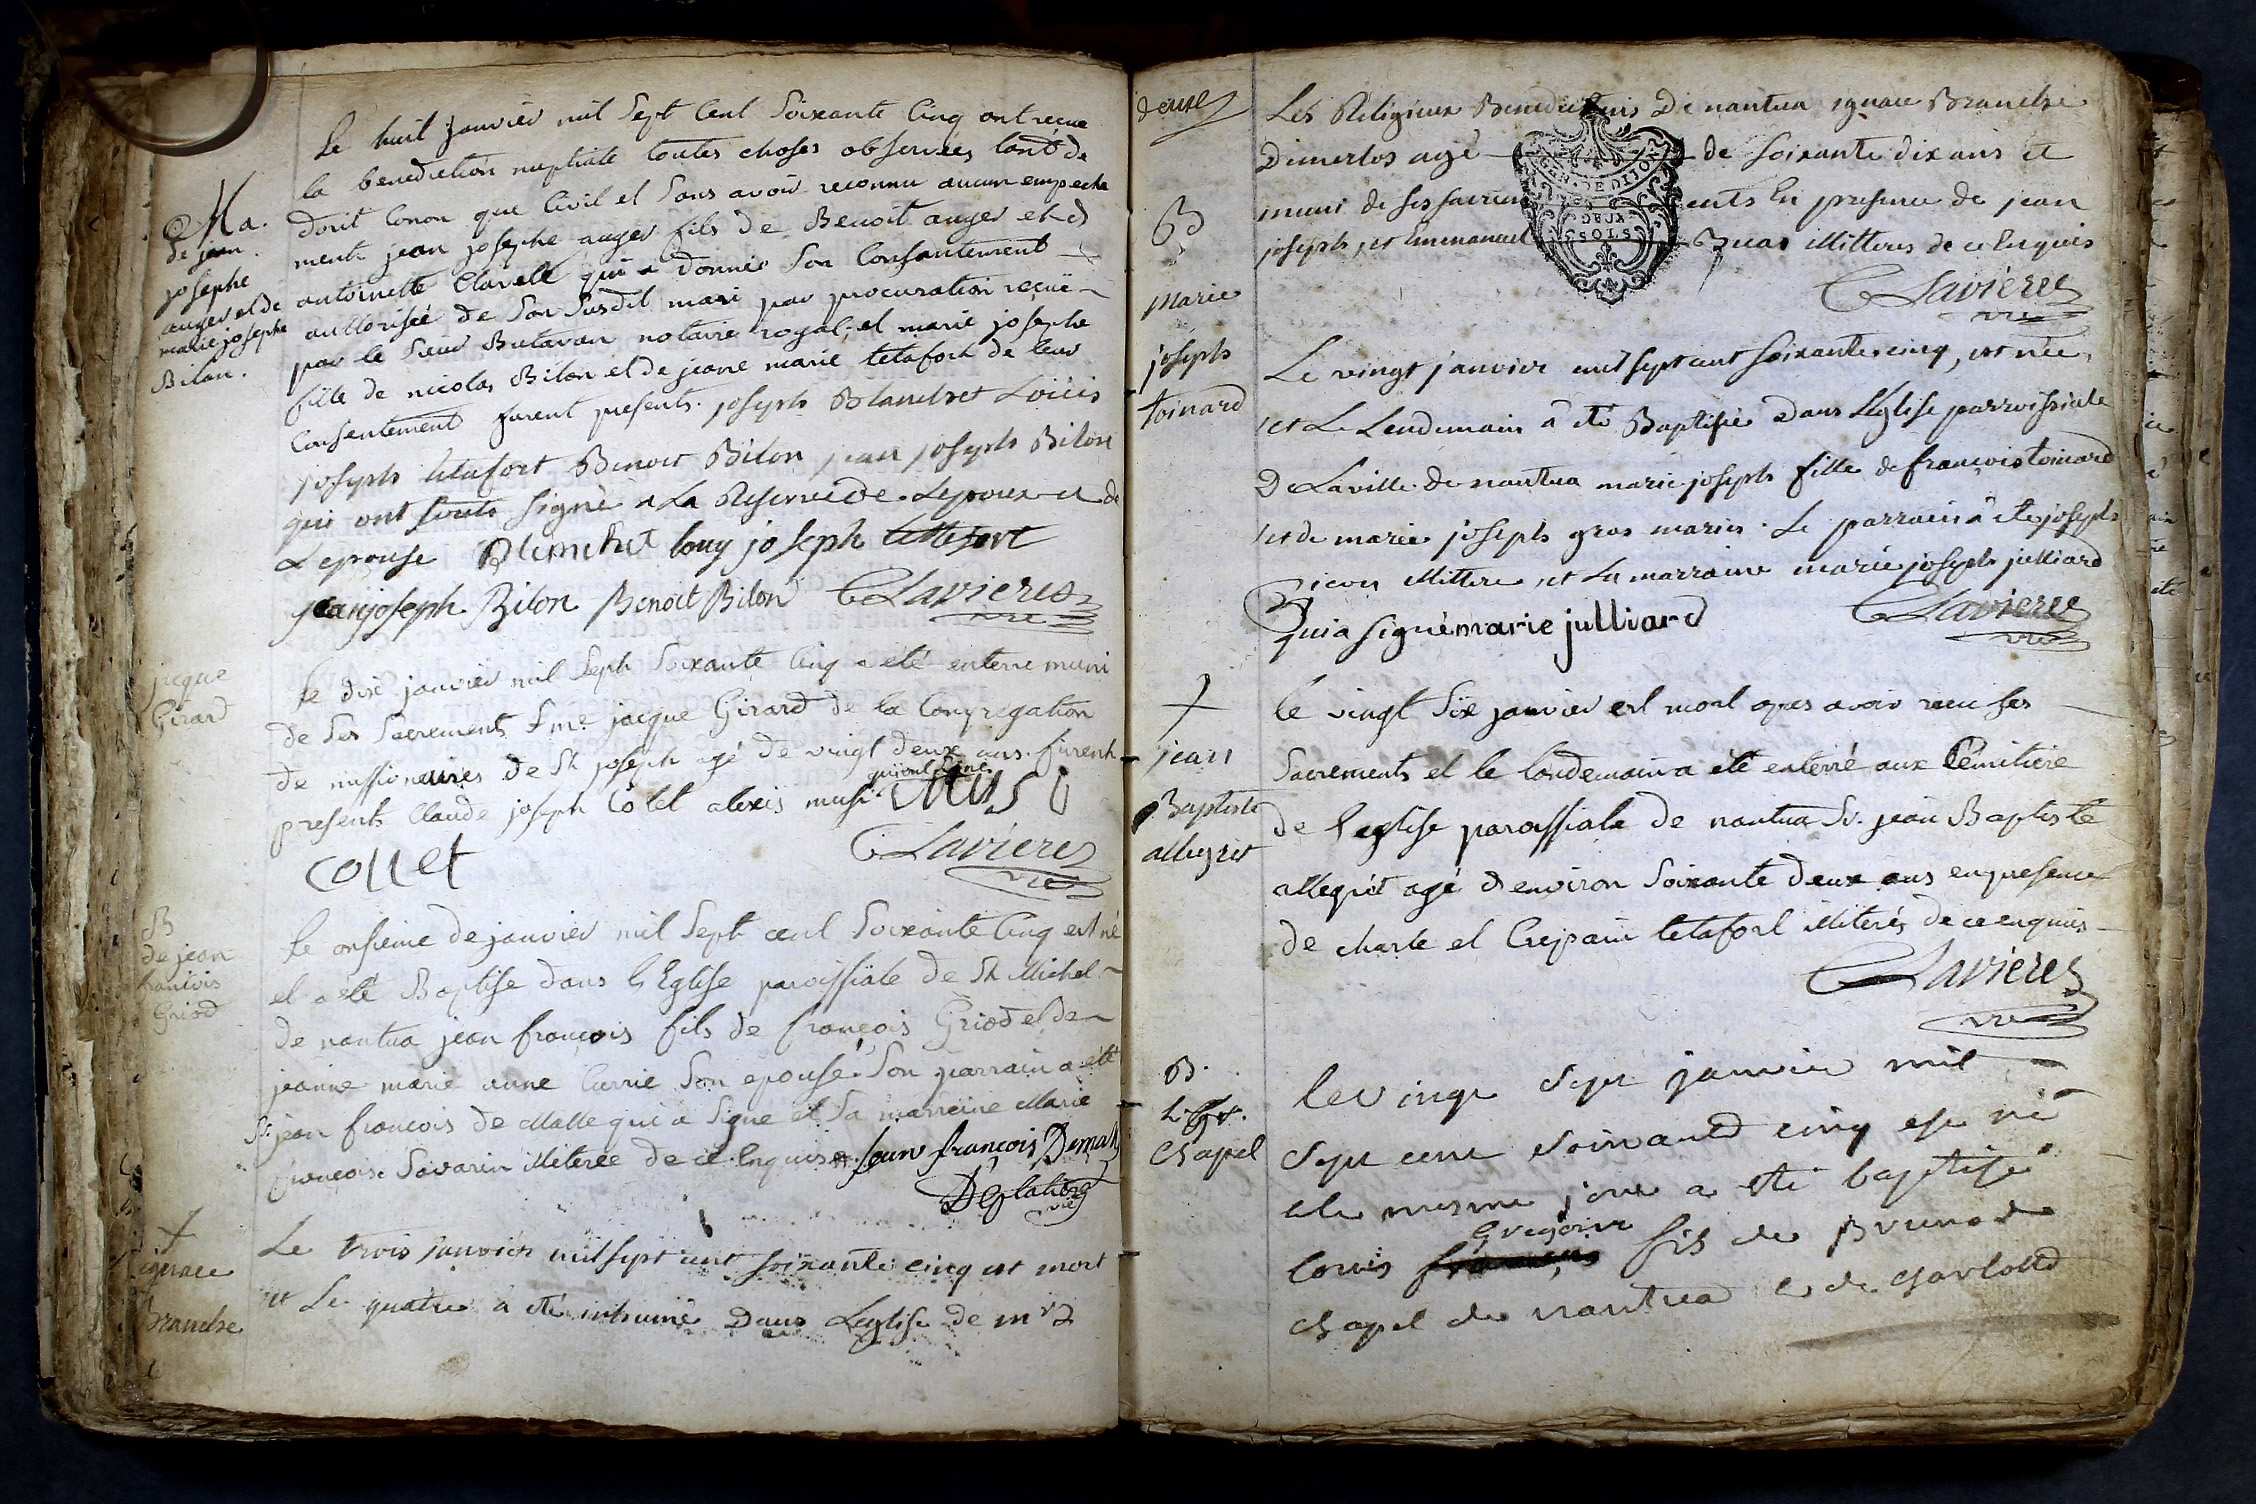 Ma.
de jean
josephe
auger et de
marie josephe
Bilon.
Le huit janvier mil sept cent soixante cinq ont reçue
la benediction nuptiale toutes choses observées tant de
droit canon que civil et sans avoir reconnu aucun empeche
ment jean josephe auger fils de Benoit auger et d
antoinette Clavelle qui a donnée son consantement
authorisée de son susdit mari par procuration reçuë
par le sieur Butavan notaire royal, et marie josephe
fille de nicolas Bilon et de jeane marie letafort de leur
consentement furent presents joseph Blanchet Loüis
joseph letafort Benoit Bilon jean joseph Bilon
qui ont touts signé a La Reserve de Lepoux et de
Lepouse Blemchet louy joseph lettefort
jean joseph Bilon Benoit Bilon CLavieres
vre
jacque
Girard
le dix janvier mil sept soixante cinq a eté enterre muni
de ses sacrements jacque Girard de la Congregation
de missionnaires de St joseph agé de vingt deux ans. furent
qui ont signé
presents Claude joseph Colet alexis musi MUSI
collet CLavieres
vre
B
de jean
francois
Griod
le onsieme de janvier mil sept cent soixante cinq est né
et a eté Baptise dans l'Eglise paroissiale de St Michel
de nantua jean françois fils de françois Griod et de
jeanne marie anne Carrie son epouse. Son parrain a eté
Sr jean francois de Matte qui a signe et sa marreine Marie
francoise Savarin illiterée de ce enquise. jean françois Demat
vre
+
ignace
branche
Le trois janvier mil sept cent soixante cinq est mort
et Le quatre a eté inhumé Dans Leglise de mrs
deux
Les Religieux Benedictins De nantua ignace Branche
Dimerlos agé de soixante dix ans et
GEN. DE DIJON
DEUX
SOLS
muni de ses sacrements En presence de jean
joseph, et Emmanuel illitteres de ce Enquis
CLavieres
vre
B
Marie
joseph
toinard
Le vingt janvier mil sept cent soixante cinq, est née,
et Le Lendemain a eté Baptisée Dans L'église parroissiale
De La ville de nantua marie joseph fille de francois toinard
et de marie joseph gros mariés. Le parrain a eté joseph
illittere, et La marraine marie joseph julliard
qui a signé marie julliard CLavieres
vre
+
jean
Baptiste
allegret
le vingt six janvier est mort apres avoir recu ses
sacrements et le landemain a eté enterré aux Cemitiere
de l'eglise paroissiale de nantua Sr. jean Baptiste
allegret agé d'environ soixante deux ans en presence
de charle et Crepain letafort illiterés de ce enquis
CLavieres
vre
B.
L. Gr.
Chapel
le vingt sept janvier mil
sept cent soixante cinq est né
et le mesme jour a eté baptisé
Gregoire
louis francois fils de Bruno
chapel de nantua et de charlotte